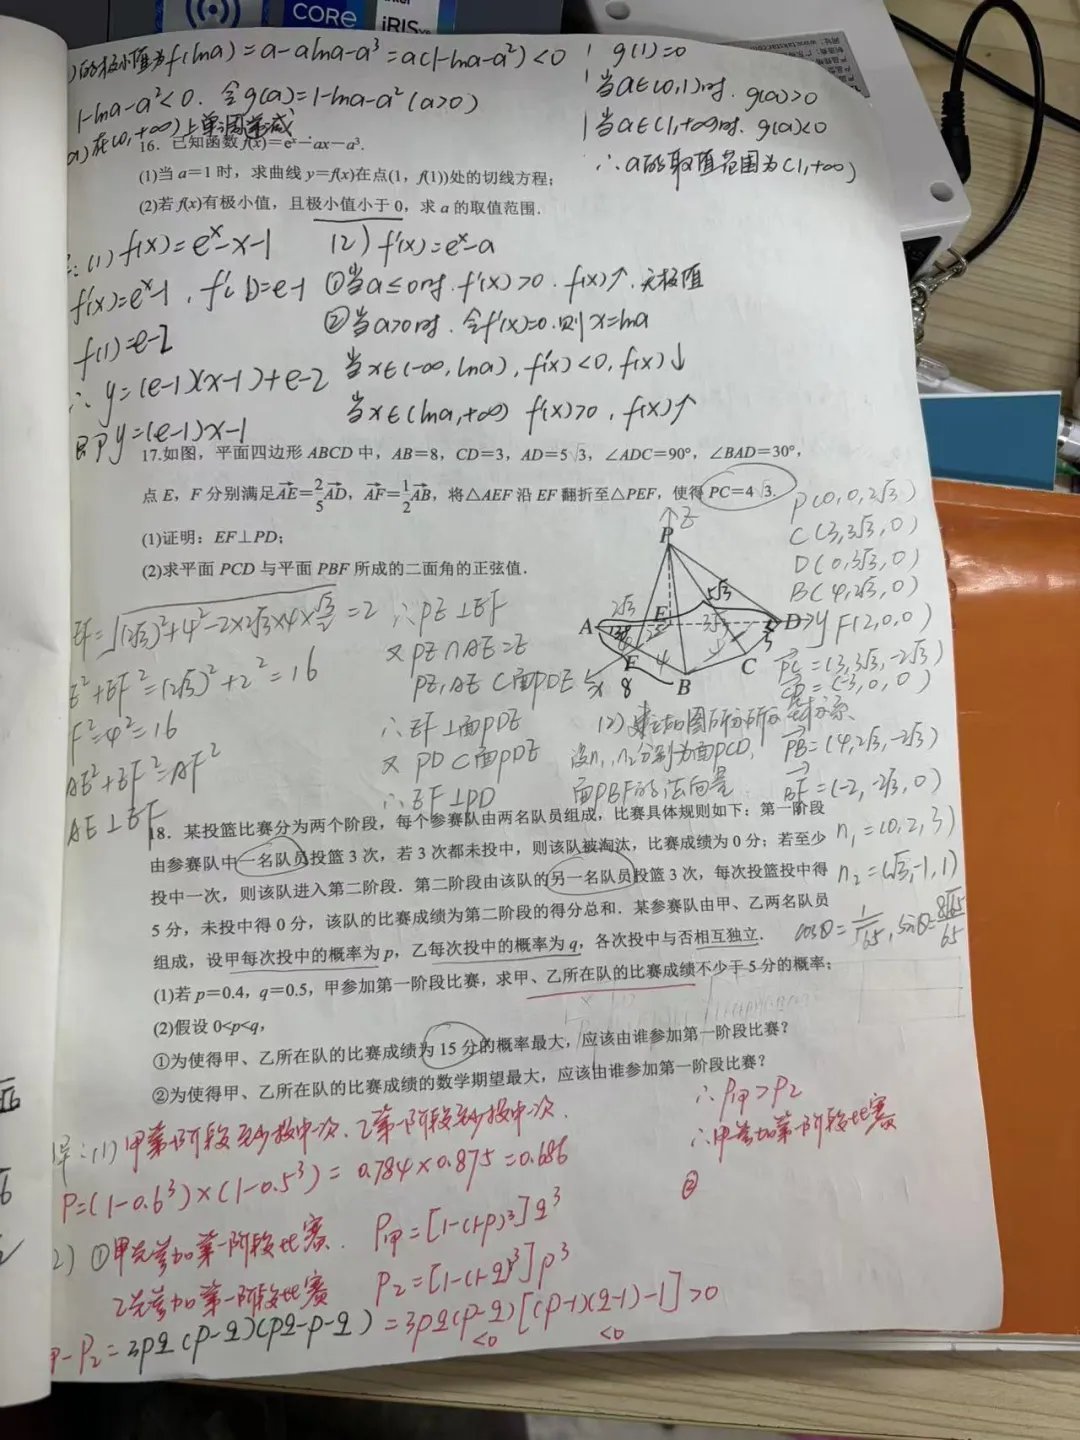 CORE
iRIS
)的极小值为f(lna)=a-alna-a³=a(1-lna-a²)<0
g(1)=0
1-lna-a²<0. 令g(a)=1-lna-a²(a>0)
当a∈(0,1)时. g(a)>0
a)在(0,+∞)上单调递减
当a∈(1,+∞)时. g(a)<0
∴a的取值范围为(1,+∞)
16. 已知函数 f(x)=eˣ-ax-a³.
(1)当 a=1 时，求曲线 y=f(x)在点(1，f(1))处的切线方程；
(2)若 f(x)有极小值，且极小值小于 0，求 a 的取值范围.
:(1) f(x)=eˣ-x-1
f'(x)=eˣ-1, f'(1)=e-1
f(1)=e-2
∴ y=(e-1)(x-1)+e-2
即y=(e-1)x-1
(2) f'(x)=eˣ-a
①当a≤0时. f'(x)>0. f(x)↑.无极值
②当a>0时. 令f'(x)=0.则x=lna
当x∈(-∞,lna), f'(x)<0, f(x)↓
当x∈(lna,+∞) f'(x)>0, f(x)↑
17.如图，平面四边形 ABCD 中，AB=8，CD=3，AD=5√3，∠ADC=90°，∠BAD=30°，
点 E，F 分别满足AE=2/5AD，AF=1/2AB，将△AEF 沿 EF 翻折至△PEF，使得 PC=4√3.
(1)证明：EF⊥PD；
(2)求平面 PCD 与平面 PBF 所成的二面角的正弦值.
EF=√((2√3)²+4²-2×2√3×4×√3/2)=2
E²+EF²=(2√3)²+2²=16
F²=4²=16
AE²+EF²=AF²
AE⊥EF
∴PE⊥EF
又PE∩AE=E
PE,AE⊂面PDE
∴EF⊥面PDE
又PD⊂面PDE
∴EF⊥PD
z
P
2√3
5√3
A
E
3√3
D
y
3
F
4
C
x
8
B
P(0,0,2√3)
C(3,3√3,0)
D(0,3√3,0)
B(4,2√3,0)
F(2,0,0)
PC=(3,3√3,-2√3)
CD=(-3,0,0)
PB=(4,2√3,-2√3)
BF=(-2,-2√3,0)
n₁=(0,2,3)
n₂=(√3,-1,1)
cosθ=1/√65, sinθ=8√65/65
(2)建立如图所示
设n₁,n₂分别为面PCD,
面PBF的法向量
18. 某投篮比赛分为两个阶段，每个参赛队由两名队员组成，比赛具体规则如下：第一阶段
由参赛队中一名队员投篮 3 次，若 3 次都未投中，则该队被淘汰，比赛成绩为 0 分；若至少
投中一次，则该队进入第二阶段．第二阶段由该队的另一名队员投篮 3 次，每次投篮投中得
5 分，未投中得 0 分，该队的比赛成绩为第二阶段的得分总和．某参赛队由甲、乙两名队员
组成，设甲每次投中的概率为 p，乙每次投中的概率为 q，各次投中与否相互独立．
(1)若 p=0.4，q=0.5，甲参加第一阶段比赛，求甲、乙所在队的比赛成绩不少于 5 分的概率；
(2)假设 0<p<q，
①为使得甲、乙所在队的比赛成绩为 15 分的概率最大，应该由谁参加第一阶段比赛？
②为使得甲、乙所在队的比赛成绩的数学期望最大，应该由谁参加第一阶段比赛？
:(1) 甲第一阶段至少投中一次、乙第二阶段至少投中一次.
P=(1-0.6³)×(1-0.5³)=0.784×0.875=0.686
2) ①甲先参加第一阶段比赛. P甲=[1-(1-p)³]q³
乙先参加第一阶段比赛 P乙=[1-(1-q)³]p³
-P乙=3pq(p-q)(pq-p-q)=3pq(p-q)[(p-1)(q-1)-1]>0
<0 <0
∴P甲>P乙
∴甲参加第一阶段比赛
②